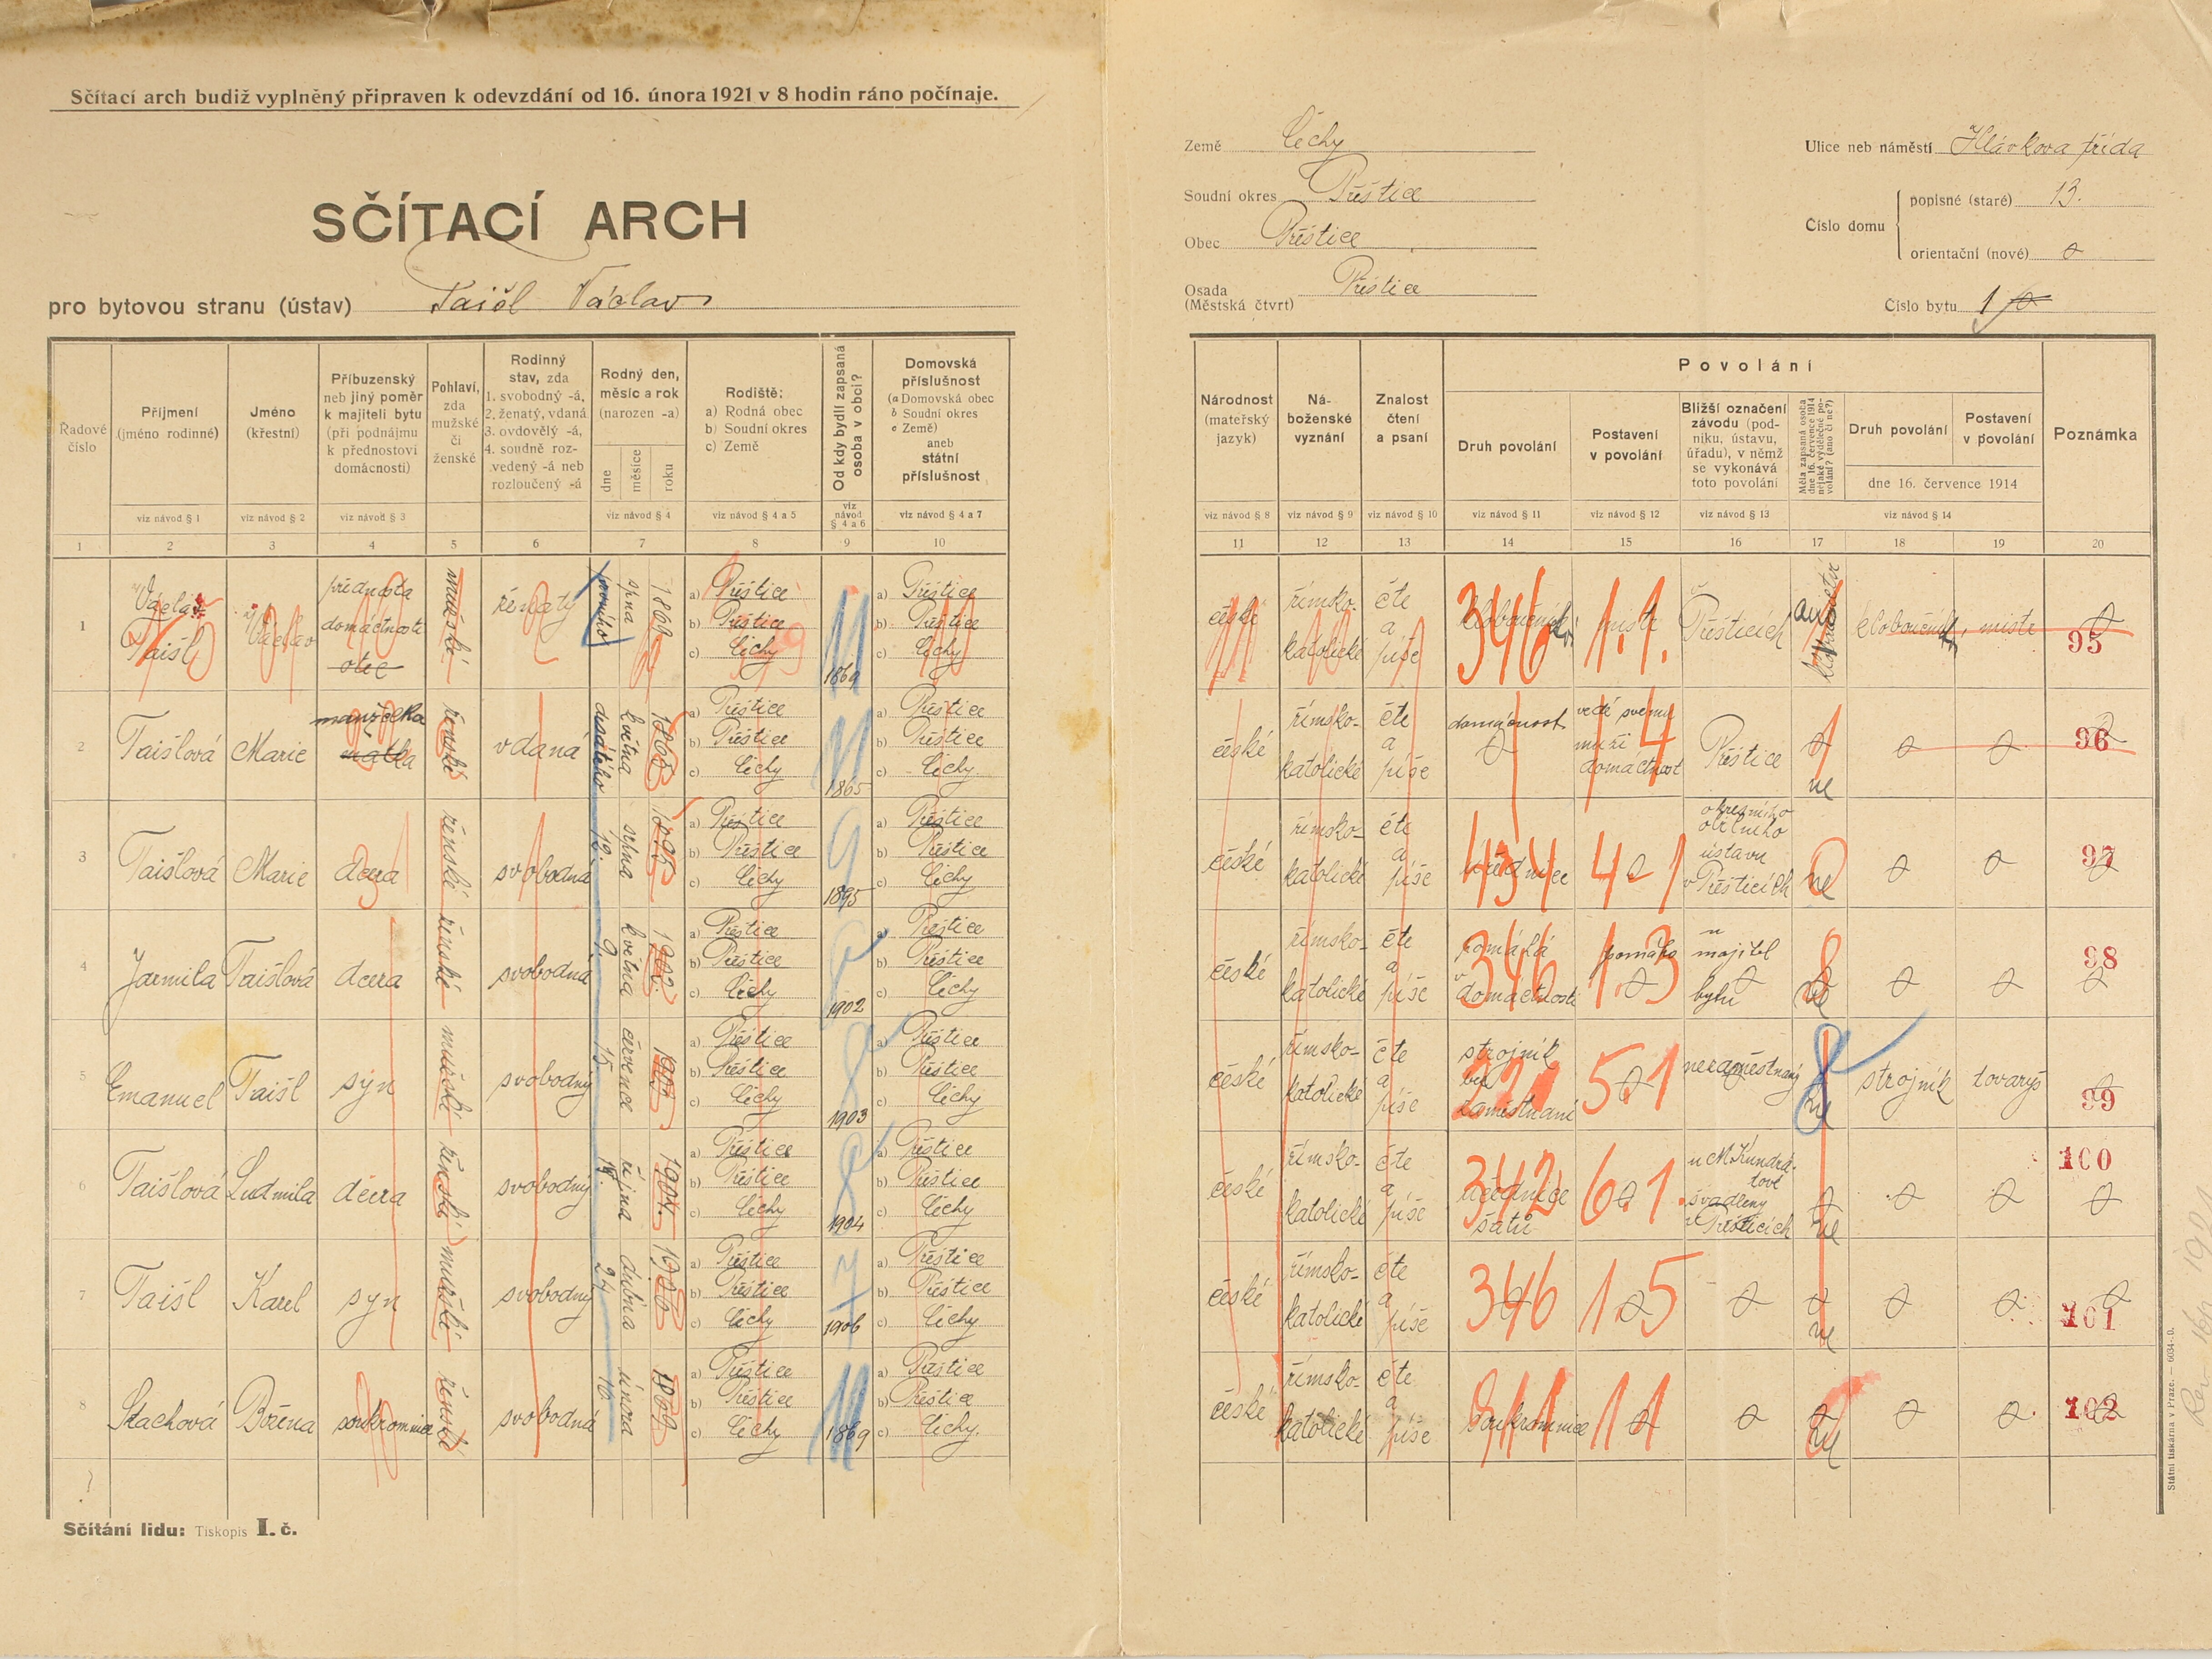 Sčítací arch budiž vyplněný připraven k odevzdání od 16. února 1921 v 8 hodin ráno počínaje.
SČÍTACÍ ARCH
pro bytovou stranu (ústav) Taišl Václav
Země Čechy
Soudní okres Přeštice
Obec Přeštice
Osada Přeštice
(Městská čtvrt)
Ulice neb náměstí Hlávkova třída
Číslo domu
popisné (staré) 13.
orientační (nové)
Číslo bytu 1
Řadové číslo
Příjmení (jméno rodinné)
Jméno (křestní)
Příbuzenský neb jiný poměr k majiteli bytu (při podnájmu k přednostovi domácnosti)
Pohlaví, zda mužské či ženské
Rodinný stav, zda 1. svobodný -á, 2. ženatý, vdaná 3. ovdovělý -á, 4. soudně rozvedený -á neb rozloučený -á
Rodný den, měsíc a rok (narozen -a)
dne měsíce roku
Rodiště:
a) Rodná obec
b) Soudní okres
c) Země
Od kdy bydlí zapsaná osoba v obci?
Domovská příslušnost
(a Domovská obec
b Soudní okres
c Země)
aneb státní příslušnost
viz návod § 1 viz návod § 2 viz návod § 3 viz návod § 4 viz návod § 4 a 5 viz návod § 4 a 6 viz návod § 4 a 7
1 2 3 4 5 6 7 8 9 10
Národnost (mateřský jazyk)
Náboženské vyznání
Znalost čtení a psaní
Povolání
Druh povolání
Postavení v povolání
Bližší označení závodu (podniku, ústavu, úřadu), v němž se vykonává toto povolání
Měla zapsaná osoba dne 16. července 1914 nějaké výdělečné povolání? (ano či ne?)
Druh povolání
Postavení v povolání
dne 16. července 1914
Poznámka
viz návod § 8 viz návod § 9 viz návod § 10 viz návod § 11 viz návod § 12 viz návod § 13 viz návod § 14
11 12 13 14 15 16 17 18 19 20
1 Taišl Václav přednosta domácnosti otec mužské ženatý srpna 1869 a) Přeštice b) Přeštice c) Čechy 1869 a) Přeštice b) Přeštice c) Čechy
české římsko-katolické čte a píše 346 1.1. Přešticích kloboučník, mistr 95
2 Taišlová Marie manželka matka ženské vdaná desátého května 1865 a) Přeštice b) Přeštice c) Čechy 1865 a) Přeštice b) Přeštice c) Čechy
české římsko-katolické čte a píše domácnost vede svému muži domácnost 4 Přeštice ne 96
3 Taišlová Marie dcera ženské svobodná srpna 1895 a) Přeštice b) Přeštice c) Čechy 9 1895 a) Přeštice b) Přeštice c) Čechy
české římsko-katolické čte a píše úřednice 434 4 1 okresního obilního ústavu v Přešticích ne 97
4 Jarmila Taišlová dcera ženské svobodná 9. května 1902. a) Přeštice b) Přeštice c) Čechy 1902 a) Přeštice b) Přeštice c) Čechy
české římsko-katolické čte a píše pomáhá v domácnosti 346 1.3 u majitel bytu ne 98
5 Emanuel Taišl syn mužské svobodný 15. července 1903 a) Přeštice b) Přeštice c) Čechy 1903 a) Přeštice b) Přeštice c) Čechy
české římsko-katolické čte a píše strojník bez zaměstnání 5 1 nezaměstnaný ne strojník tovaryš 99
6 Taišlová Ludmila dcera ženské svobodný října 1904. a) Přeštice b) Přeštice c) Čechy 1904 a) Přeštice b) Přeštice c) Čechy
české římsko-katolické čte a píše učednice šatů 342 6.1. u M. Kundrátové švadleny v Přešticích ne 100
7 Taišl Karel syn mužské svobodný 24 dubna 1906 a) Přeštice b) Přeštice c) Čechy 7 1906 a) Přeštice b) Přeštice c) Čechy
české římsko-katolické čte a píše 346 1 5 ne 101
8 Stachová Božena soukromnice ženské svobodná 16. února 1869 a) Přeštice b) Přeštice c) Čechy 1869 a) Přeštice b) Přeštice c) Čechy.
české římsko-katolické čte a píše soukromnice 11 ne 102
Sčítání lidu: Tiskopis I. č.
Státní tiskárna v Praze. — 6034-0.